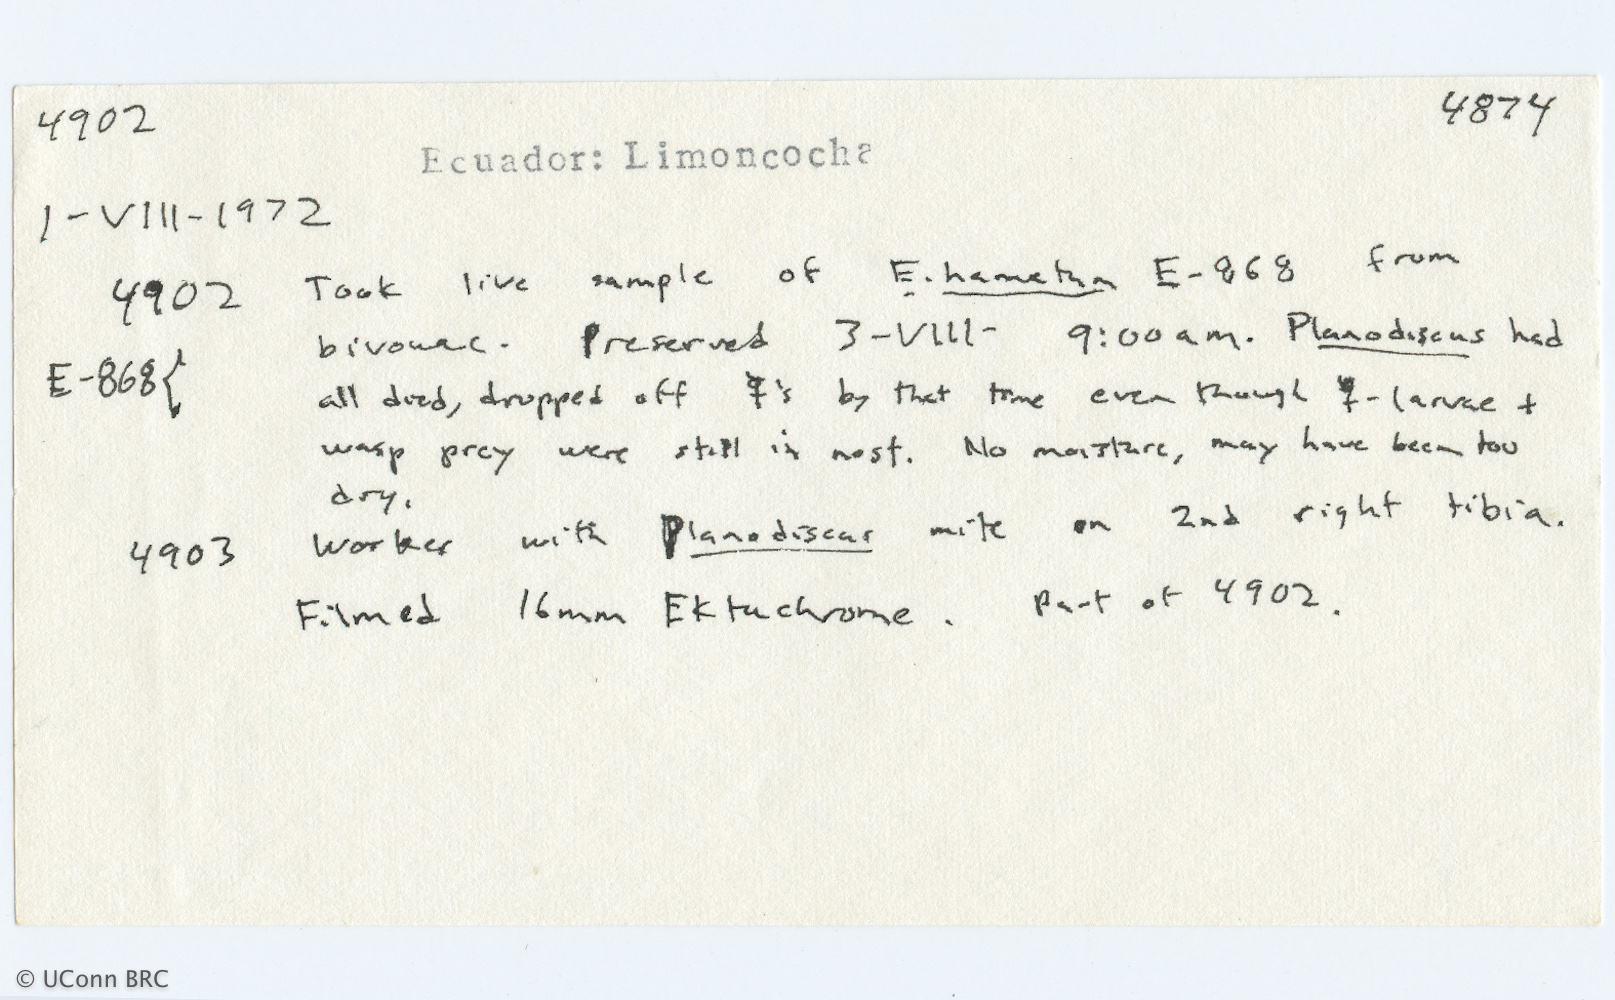 4902
4874
Ecuador: Limoncocha
1-VIII-1972
4902 Took live sample of E. hamatum E-868 from
bivouac. Preserved 3-VIII- 9:00 am. Planodiscus had
E-868{ all died, dropped off ☿'s by that time even though ☿-larvae +
wasp prey were still in nest. No moisture, may have been too
dry.
4903 Worker with Planodiscus mite on 2nd right tibia.
Filmed 16mm Ektachrome. Part of 4902.
© UConn BRC